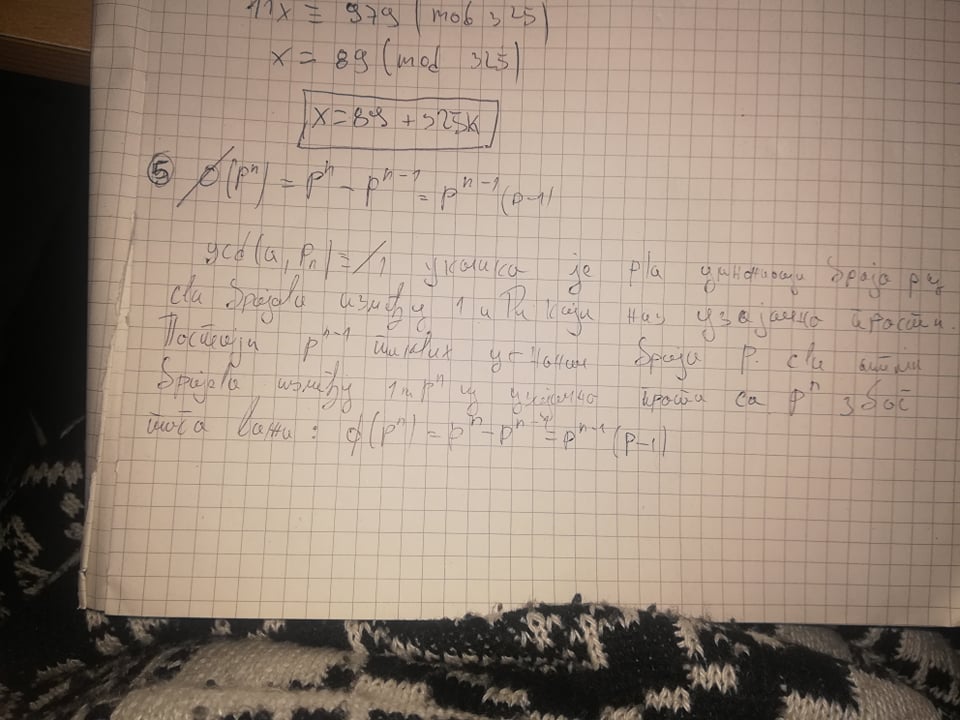 11x ≡ 979 (mod 325)
x ≡ 89 (mod 325)
x = 89 + 325k
5 φ(pⁿ) = pⁿ - pⁿ⁻¹ = pⁿ⁻¹(p-1)
gcd(a, pₙ) ≠ 1 је p|a броја p
сви бројеви између 1 и нису узајамно прости.
Постоји pⁿ⁻¹ таквих броја p. сви остали
бројеви између 1 и pⁿ су узајамно прости са pⁿ због
тога важи: φ(pⁿ) = pⁿ - pⁿ⁻¹ = pⁿ⁻¹(p-1)